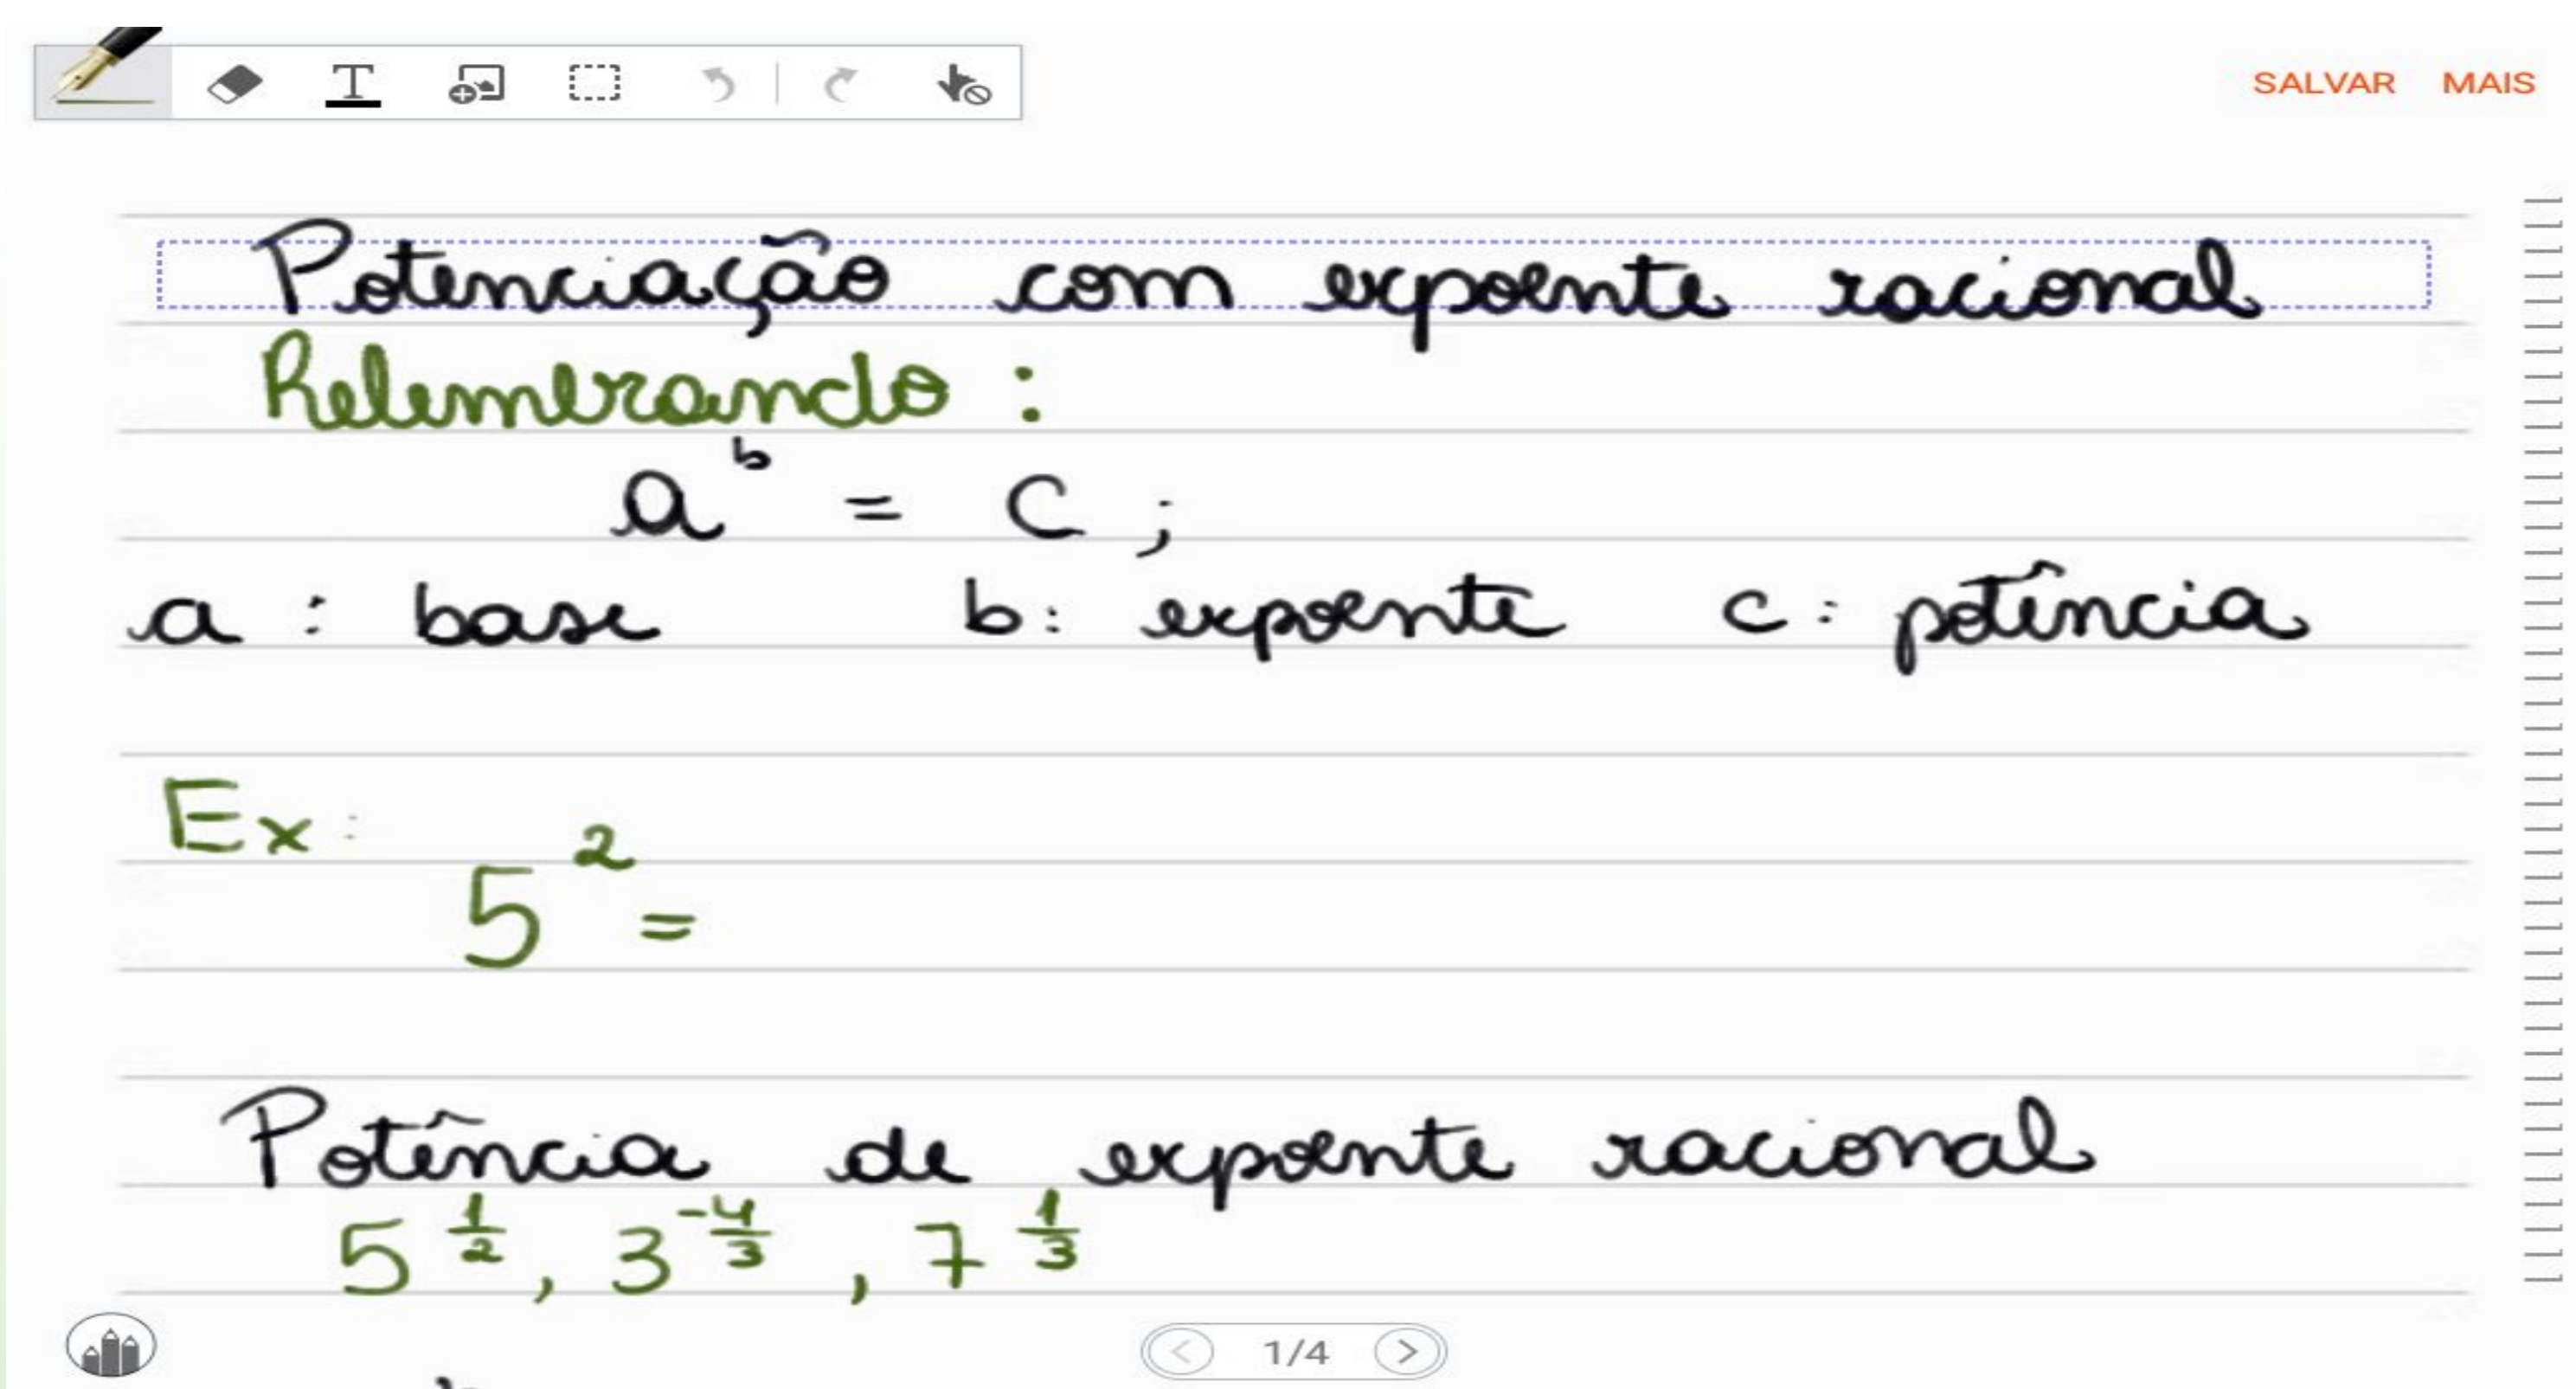 T
SALVAR MAIS
Potenciação com expoente racional
Relembrando :
a^b = c ;
a : base b: expoente c: potência
Ex:
5^2 =
Potência de expoente racional
5^{1/2}, 3^{-4/3}, 7^{1/3}
1/4